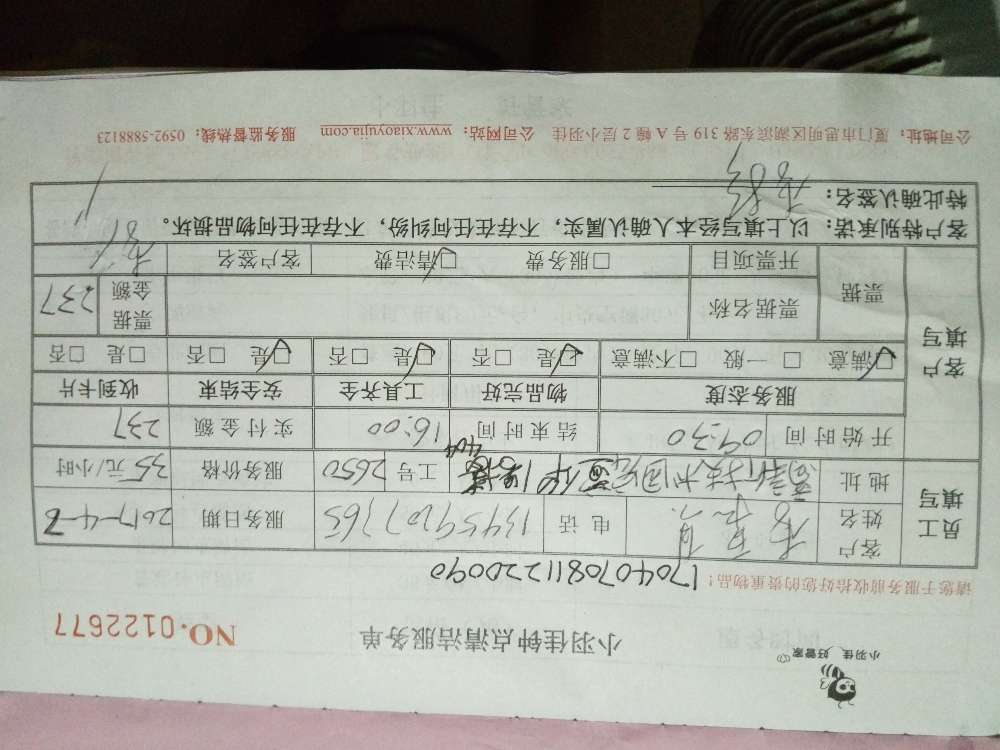 小羽佳 好管家
小羽佳钟点清洁服务单 NO.0122677
请您于服务前收拾好您的贵重物品！ 1704070811220090
员工填写 客户姓名 电话 13459207765 服务日期 2017-4-8
地址 高新技术园 404 工号 2650 服务价格 35元/小时
开始时间 09:30 结束时间 16:00 实付金额 237
客户填写 服务态度 物品完好 工具齐全 安全结束 收到卡片
☑满意 □一般 □不满意 ☑是 □否 ☑是 □否 ☑是 □否 □是 □否
票据 票据名称 票据金额 237
开票项目 □服务费 ☑清洁费 客户签名
客户特别承诺：以上填写经本人确认属实，不存在任何纠纷，不存在任何物品损坏。
特此确认签名：
公司地址：厦门市思明区湖滨东路319号A幢2层小羽佳 公司网站：www.xiaoyujia.com 服务监督热线：0592-5888123